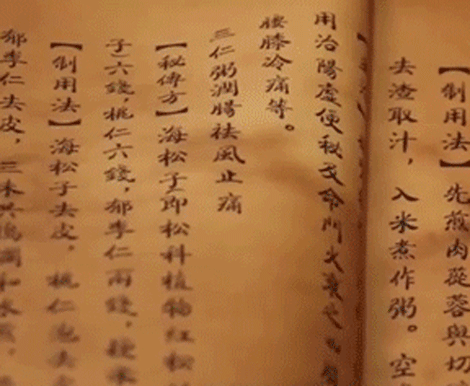 【制用法】先煎肉苁蓉與切
去渣取汁，入米煮作粥。空
用治陽虛便秘及命門火衰之
腰膝冷痛等。
三仁粥潤腸祛風止痛
【秘傳方】海松子即松科植物紅松
子六錢，桃仁六錢，郁李仁兩錢，粳米
【制用法】海松子去皮，桃仁泡去
郁李仁去皮，三味共搗爛和水